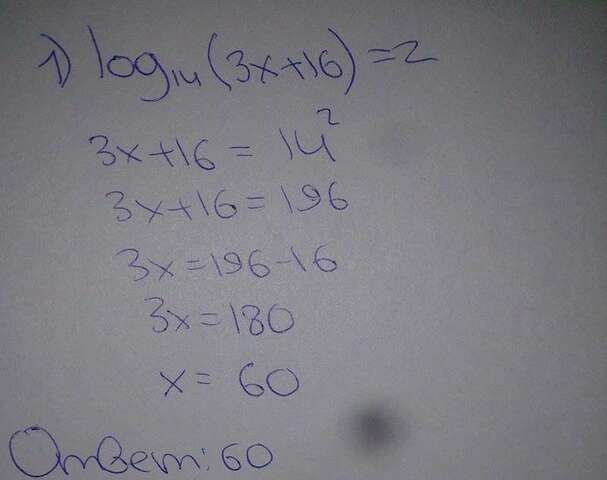 1) log₁₄(3x+16)=2
3x+16=14²
3x+16=196
3x=196-16
3x=180
x=60
Ответ: 60